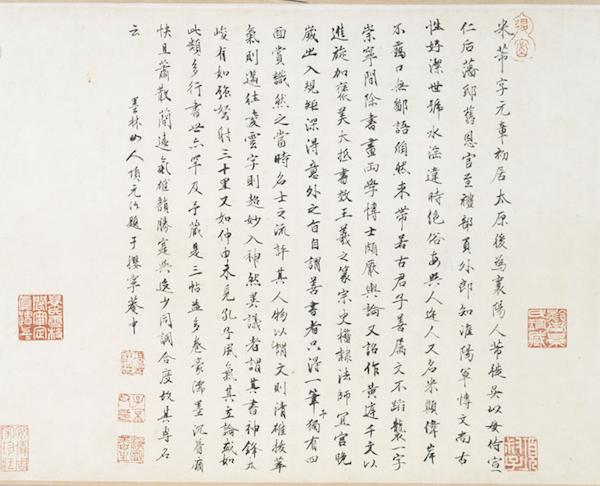 米芾字元章初居太原後為襄陽人芾徙吳以女侍宣
仁后藩邸舊恩官至禮部員外郎知淮陽軍博文尚古
性好潔世號水淫違時絕俗每與人迕人又名米顛偉岸
不羈口無鄙語傾然束帶若古君子善屬文不蹈襲一字
崇寧間除書畫兩學博士頗厭輿論又詔作黃庭千文以
進旋加褒美大抵書效王羲之篆宗史籀隸法師宜官晚
歲出入規矩深得意外之旨自謂善書者只得一筆予獨有四
面賞識然之當時名士之流評其人物以謂文則清雄拔萃
氣則邁往凌雲字則超妙入神然異議者謂其書神鋒太
峻有如強弩射三十里又如仲由未見孔子風氣其立論如
此類多行書世亦罕及予藏是三帖並多卷豪濡墨沉著痛
快且蕭散簡遠氣雄韻勝寔與逸少同調合度故其專名
云
墨林山人項元汴題于攖寧菴中